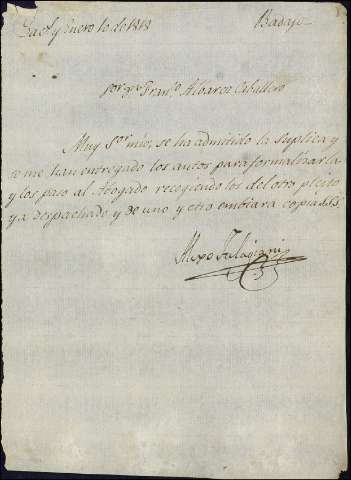 y Enero 10 de 1818
Badajoz
Fran.co Alvarez Caballero
Muy S.or mio, se ha admitido la suplica y
se me han entregado los autos para formalizarla
y los paso al Abogado recogiendo los del otro pleito
ya despachado y de uno y otro embiara copia